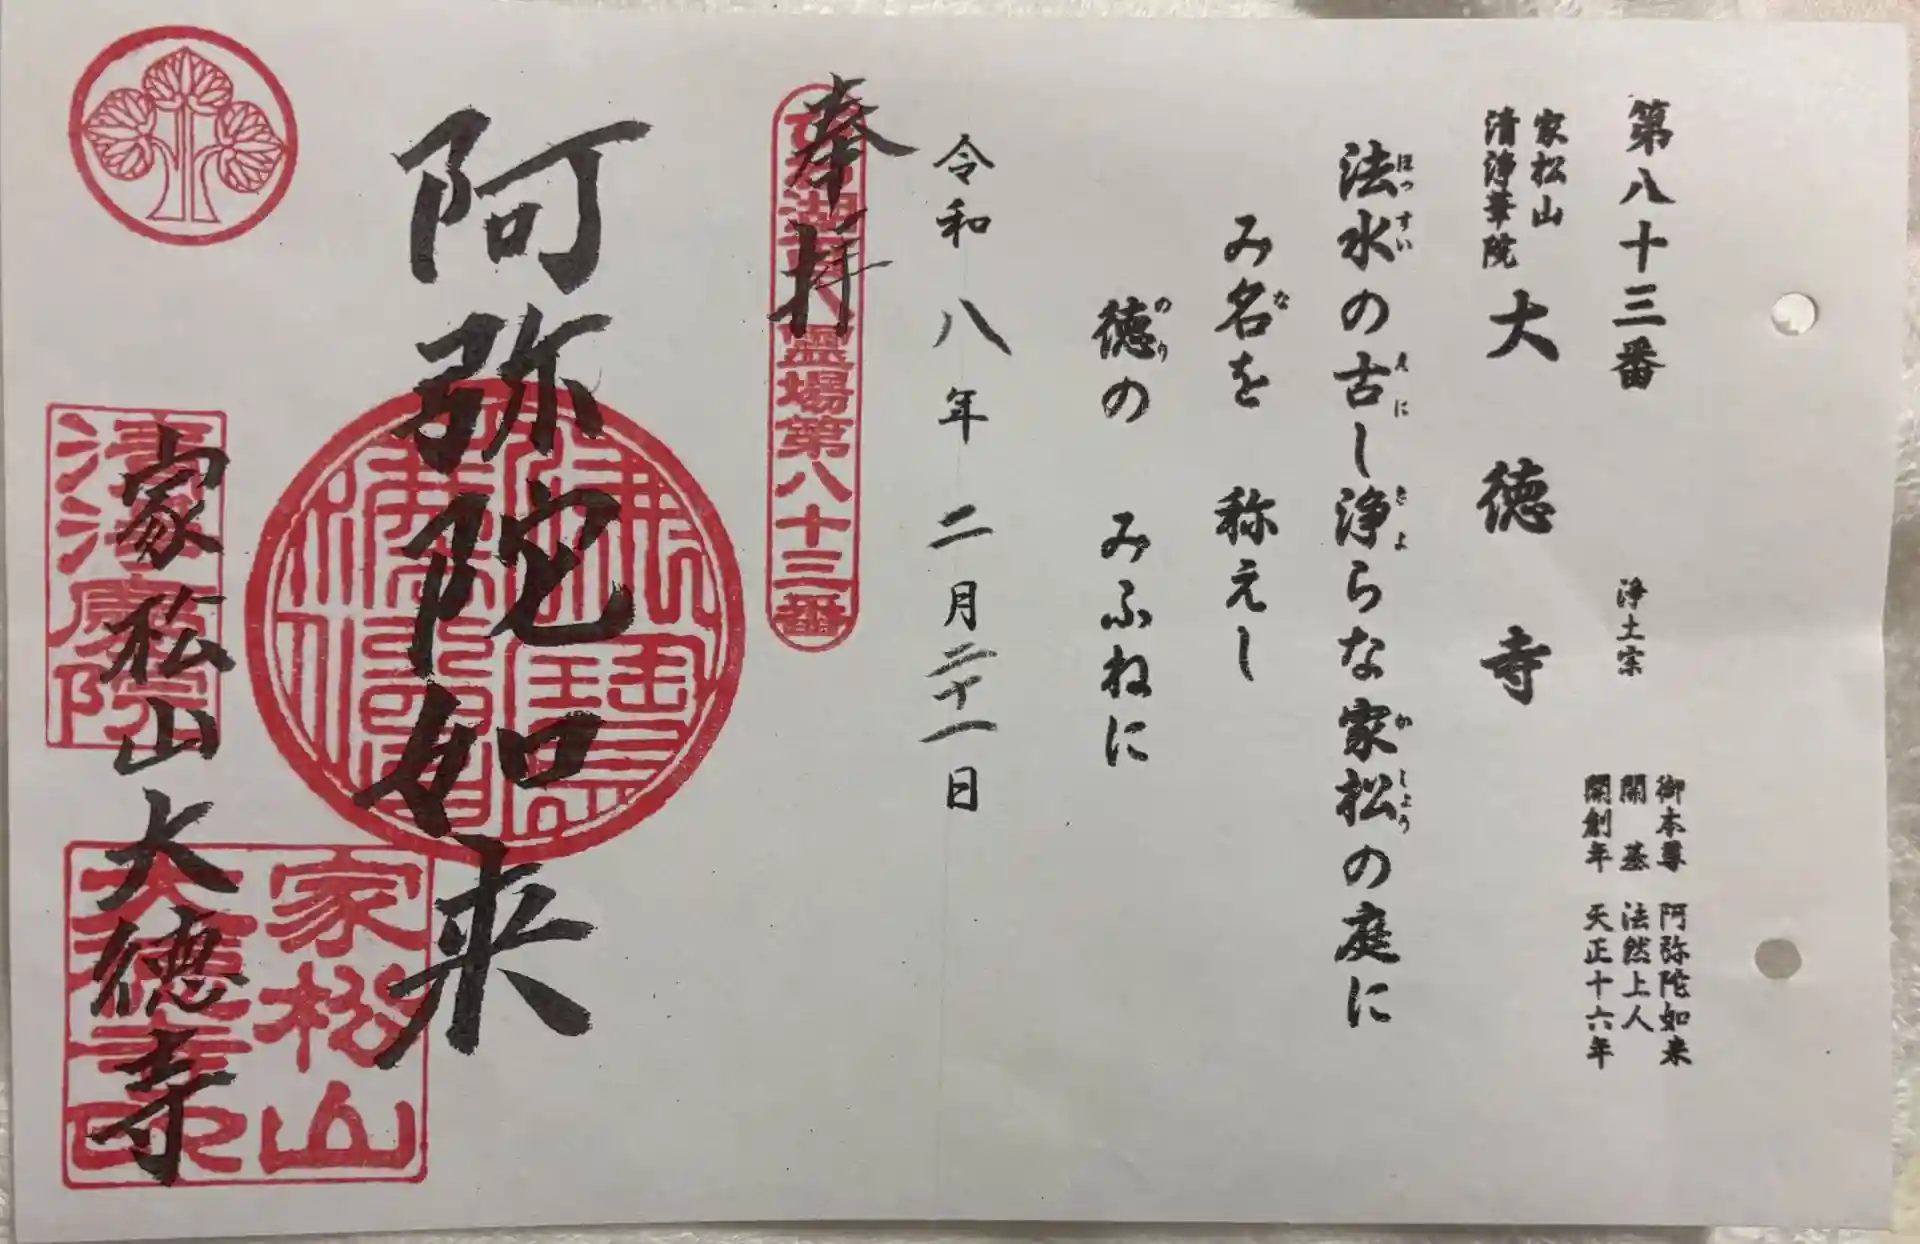 第八十三番
家松山
清浄華院
大徳寺
浄土宗
御本尊 阿弥陀如来
開 基 法然上人
開創年 天正十六年
法水の古し浄らな家松の庭に
ほっすい えに きよ かしょう
み名を 称えし
な
徳の みふねに
のり
令和八年二月二十一日
奉拝
霊場第八十三番
阿弥陀如来
家松山大徳寺
家松山